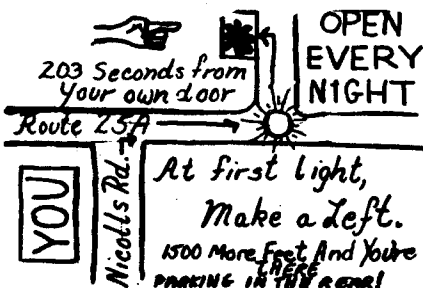 OPEN
EVERY
NIGHT
203 Seconds from
your own door
Route 25A
YOU
Nicolls Rd.
At first light,
Make a Left.
1500 More Feet And You're
THERE
PARKING IN THE REAR!